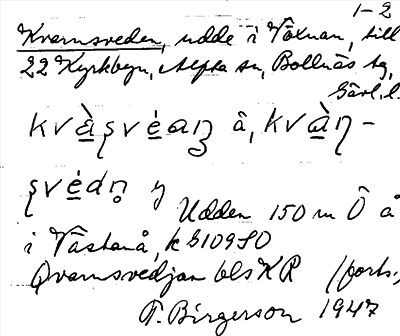 1-2
Kvarnsveden, udde i Voxnan, till
22 Kyrkbyn, Alfta sn, Bollnäs tg,
Gävl.l.
kvàṣvéaṇ å, kvàṇ-
ṣvédṇ y
Udden 150 m Ö å
i Västanå, k G109SO
Qvarnsvedjan bls KR (forts.,
T. Birgerson 1947